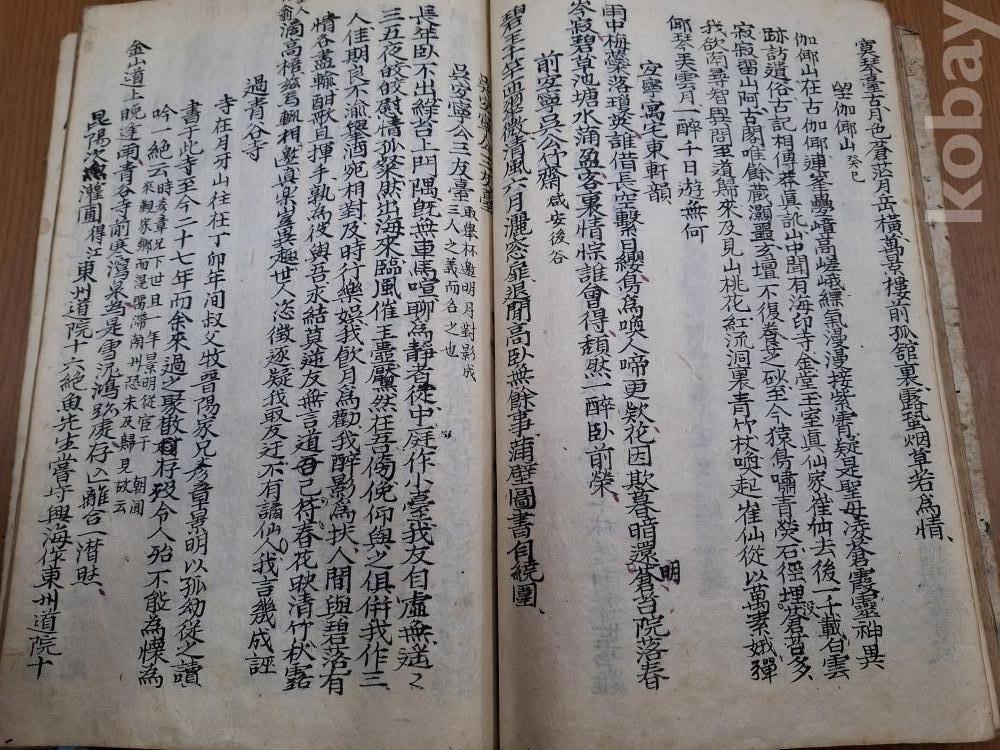 莫琴臺古月色蒼茫月岳橫萬景樓前孤舘裏露蛩烟草若為情
望伽倻山 癸巳
伽倻山在古伽倻連峯疊嶂高嵯峨縹氣漫漫接紫霄疑是聖母凌蒼霞靈神異
跡訪遺俗古記相傳莽眞訛山中聞有海印寺金堂玉室眞仙家崔仙去後一千載白雲
寂寂留山阿古閣唯餘藏灝噩玄壇不復養芝砂至今猿鳥嘯青熒石徑埋蒼苔多
我欲南尋智異問至道歸來及見山桃花紅流洞裏青竹杖喚起崔仙從以萬素娥彈
倻琴美雲月一醉十日遊無何
安寧寓宅東軒韻
雨中梅蘂落瓊英誰借長空繫日纓鳥為喚人啼更欵花因欺春暗還明蒼苔院落春
岑寂碧草池塘水滿盈客裏情悰誰會得頹然一醉臥前榮
前安寧吳公竹齋 咸安後谷
碧玉千竿匝翠微清風六月灑窓扉退閒高臥無餘事蒲壁圖書自繞圍
吳安寧公三友臺 取擧杯邀明月對影成三人之義而名之也
長年臥不出綠苔上門隅旣無車馬喧聊為靜者徒中庭作小臺我友自虛無遙之
三五夜皎皎慰情孤粲然出海來臨風催玉壺儼然在吾傍俛仰與之俱併我作三
人佳期良不渝擧酒宛相對及時行樂娛我飮月為勸我醉影為扶人間與碧落有
情各盡輸酣歌且揮手孰為彼與吾永結莫逆友無言道吾已符春花映清竹秋露
滴高梧玆焉輒相邀眞樂豈異趣世人恣徵逐疑我取友迂不有謫仙人我言幾成誣
過青谷寺
寺在月牙山往在丁卯年間叔父牧晋陽炭兄彥章景明以孤幼從之讀
書于此寺至今二十七年而余來過之聚散存殁令人殆不能為懷為
吟一絶云 時彥章兄下世且一年景明從官于朝聞來觀家鄉而濕留滯南州恐未及歸見故云
金山道上晚逢雨青谷寺前寒瀉泉為是雪泥鴻跡處存亡離合一潸然
昆陽次魚灌圃得江東州道院十六絶魚先生嘗守興海作東州道院十